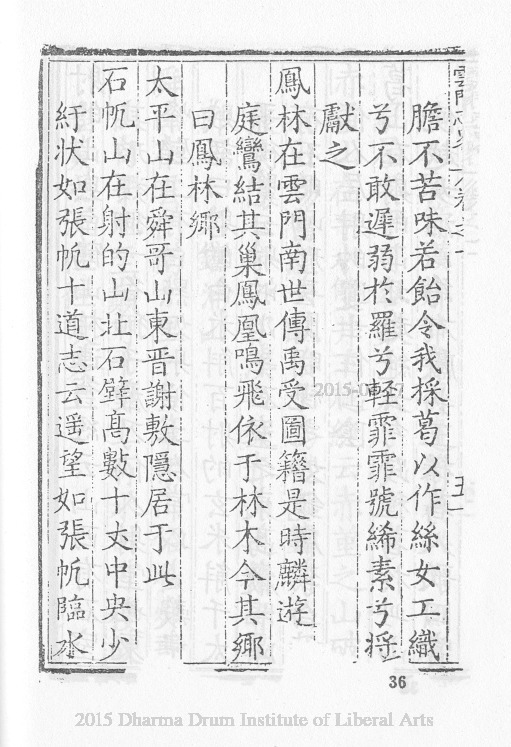 膽不苦味若飴令我採葛以作絲女工織
兮不敢遲弱於羅兮輕霏霏號絺素兮将
獻之
鳳林在雲門南世傳禹受圖籍是時麟遊
庭鸞結其巢鳳凰鳴飛依于林木今其鄉
曰鳳林鄉
太平山在舜哥山東晋謝敷隱居于此
石帆山在射的山北石壁髙數十丈中央少
紆状如張帆十道志云遥望如張帆臨水
36
2015 Dharma Drum Institute of Liberal Arts